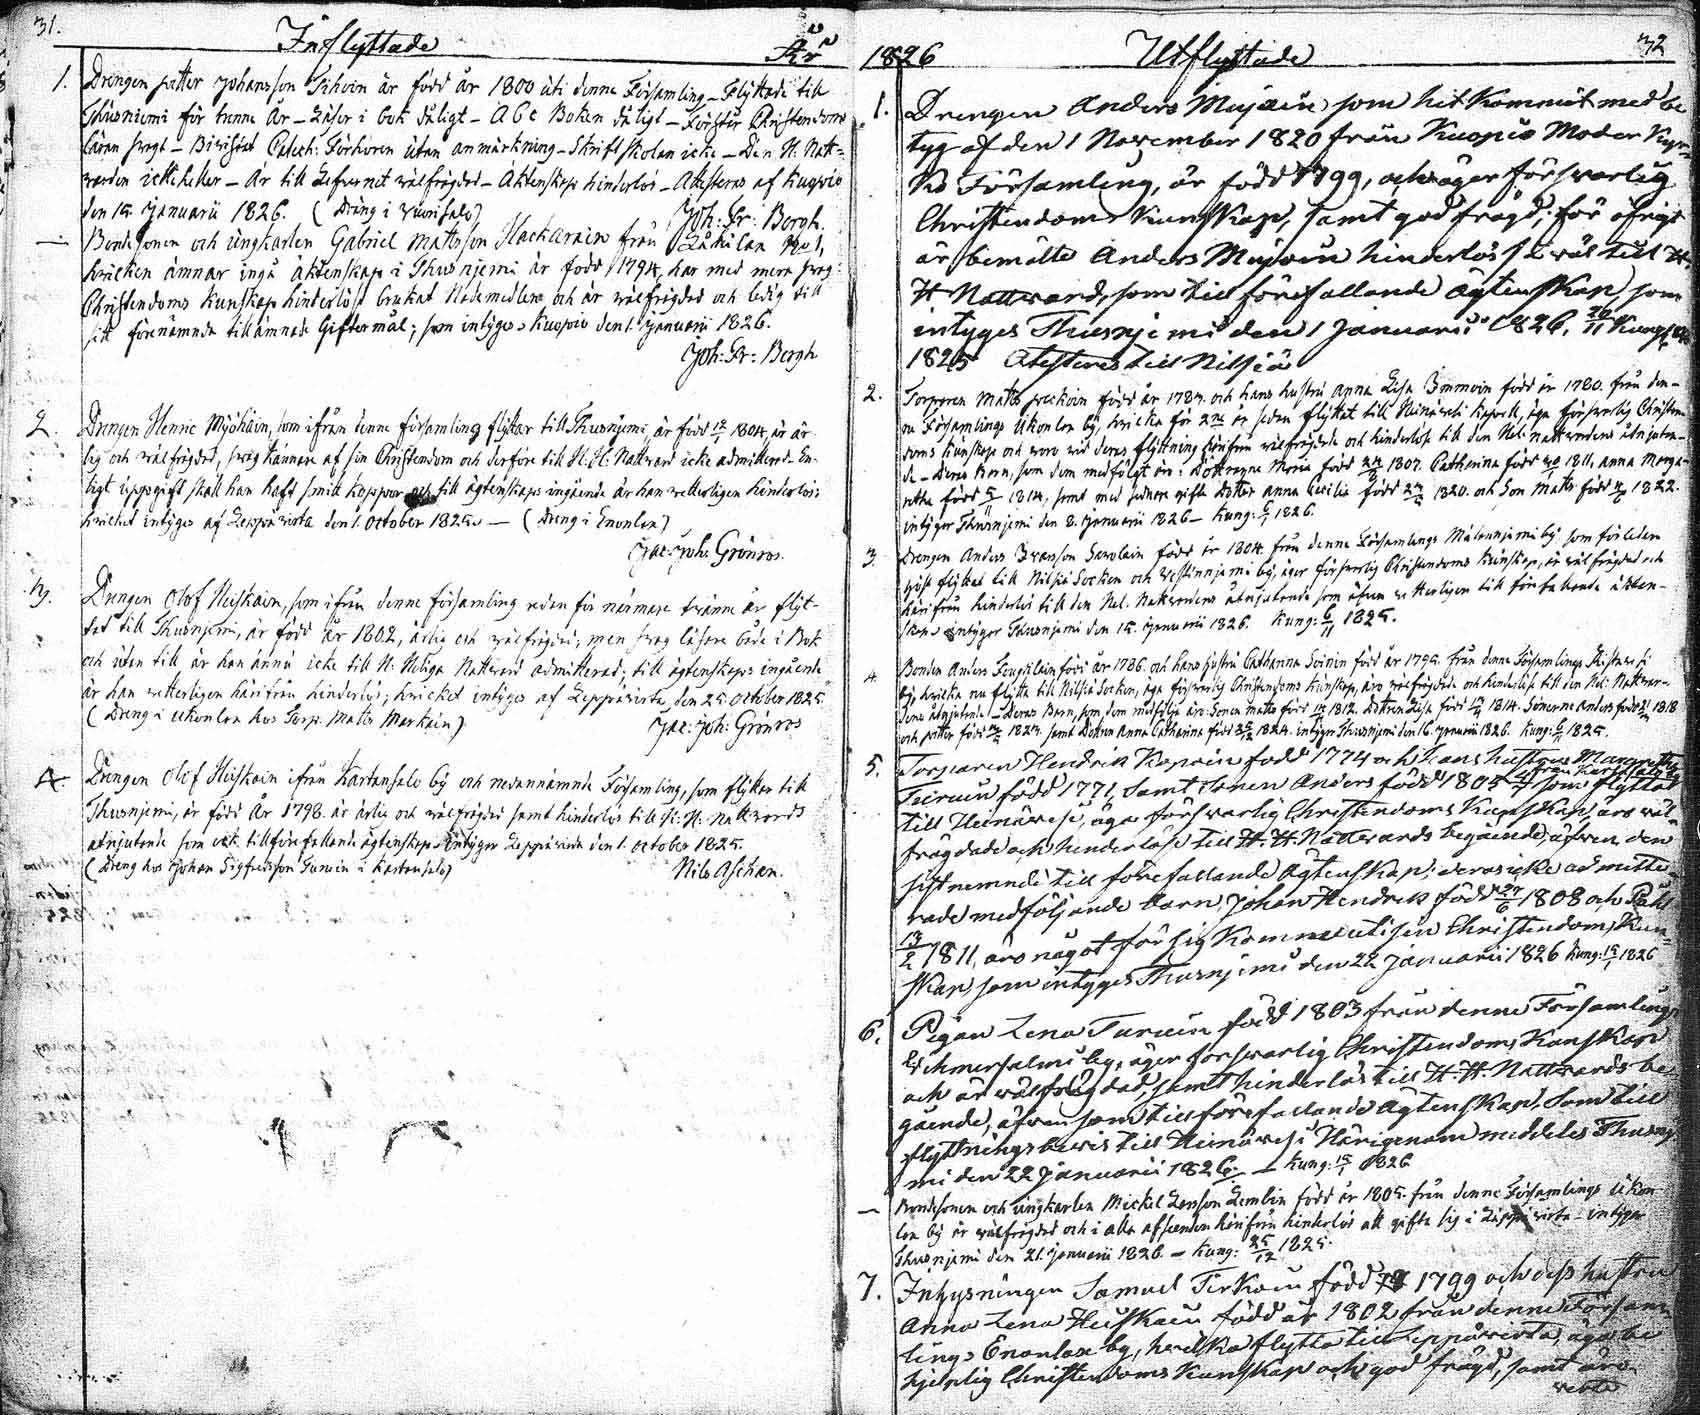 31.
Inflyttade
År
1. Drengen petter Johansson Tihoin är född år 1800 uti denna Församling – Flyttade till
Thusniemi för tvenne År – Läser i bok dåligt – Abc Boken dåligt – Förstår Christendoms
läran swagt – Biwistat Catech: Förhören utan anmärkning – Skriftskolan icke – Den H. Natt-
warden icke heller – Är till Lefvernet wälfrägdad – Äktenskaps hinderlös – Attesteras af Kuopio
den 15. Januarii 1826. (Dräng i
Joh: Fr: Bergh.
– Bondesonen och ungkarlen Gabriel Mattsson Hackarain från No 1,
hvilken ämnar ingå äktenskap i Thusnjemi är född 1794, har med mera swag
Christendoms kunskap hinderlöst brukat Nådemedlen och är wälfrägdad och ledig till
sitt förenämnda tillämnade Giftermål; som intygas Kuopio den 1. Januarii 1826.
Joh: Fr: Bergh
2. Drengen Henric Myöhäin, som ifrån denne församling flyttar till Thusnjemi, är född 1804, är är-
lig och wälfrägdad, swag kännare af sin Christendom och derföre till H. H. Nattward icke admitterad. En-
ligt uppgift skall han haft smitt koppor och till ägtenskaps ingående är han vetterligen hinderlös;
hvilket intygas af Leppävirta den 1. October 1825. – (Dreng i Enonlax)
Jac: Joh: Grönros.
3. Drengen Olof Heiskain, som ifrån denne församling redan för närmare tvänne år flyt-
tat till Thusnjemi, är född år 1802, ärlig och wälfrägdad; men swag läsare både i Bok
och utan till är han ännu icke till H. Heliga Nattward admitterad; till ägtenskaps ingående
är han vetterligen härifrån hinderlös; hvilket intygas af Leppävirta, den 25. October 1825.
(Dreng i Ukonlax hos Torp. Matts Markain)
Jac: Joh: Grönros
4. Drengen Olof Heiskain ifrån Kartansalo by och nedannämnde Församling, som flyttar till
Thusnjemi, är född År 1798. är ärlig och wälfrägdad samt hinderlös till H. H. Nattwards
åtnjutande som ock till förefallande ägtenskap. Intygar Leppävirta den 1. October 1825.
(Dreng hos Johan Sigfredsson Turuin i Kartansalo)
Nils Aschan.
1826
Utflyttade
32
1. Drengen Anders Mujuin som hit kommit med be-
tyg af den 1 November 1820 från Kuopio Moder Kyr-
ko Församling, är född 1799, och äger försvarlig
Christendoms Kunskap, samt god frägd; för öfrigt
är bemälte Anders Mujuin hinderlös så wäl till H.
H. Nattward, som till förefallande Ägtenskap, som
intyges Thusnjemi den 1 Januarii 1826. 20/11 Kungj:
1825 Attesteras till Nilsiä
2. Torparen Matts född år 1787. och hans hustru Anna Lisa Immoin född år 1780. från den-
na Församlings Ukonlax by, hvilka för 2ne år sedan flyttat till Heinävesi Kapell, äga försvarlig Christen-
doms kunskap och woro wid deras flyttning härifrån wälfrägdade och hinderlösa till den Hel: nattwardens åtnjutan-
de – Deras Barn, som dem medföljt äro: Döttrarne Maria född 1807. Catharina född 1811, Anna Marga-
retha född 1814, samt med sednare gifte Dotter Anna Cecilia född 1820. och Son Matts född 1822.
intygar Thusnjemi den 8. Januarii 1826 – Kung: 6/1 1826.
3. Drengen Anders Ivarsson Savolain född år 1804 från denna Församlings by som förleden
höst flyttat till Nilsiä Socken och Westinnjemi by, äger försvarlig Christendoms kunskap, är wälfrägdad och
härifrån hinderlös till den Hel. Nattwardens åtnjutande som äfven vetterligen till förefallande äkten-
skap. intygar Thusnjemi den 15. Januarii 1826. Kung: 6/11 1825.
4. Bonden Anders född år 1786. och hans hustru Catharina Soinin född år 1795. från denna Församlings
by, hvilka nu flytta till Nilsiä Socken, äga försvarlig Christendoms kunskap, äro wälfrägdade och hinderlösa till den Hel. Nattwar-
dens åtnjutande – Deras Barn, som dem medfölja äro: Sonen Matts född 1812. Dottren Lisa född 1814. Sönerne Anders född 1818
och petter född 182 samt Dottren Anna Catharina född 1824. intygar Thusnjemi den 16. Januarii 1826. Kung: 6/11 1825.
5. Torparen Hendrik född 1774 och hans hustru Margretha
född 1771, samt Sonen Anders född 1805 ifrån Kartansalo by som flyttat
till Heinävesi, äga försvarlig Christendoms Kunskap, äro wäl-
frägdade och hinderlösa till H. H. Nattwards begående, äfven den
sistnemnde till förefallande Ägtenskap; deras icke admitte-
rade medföljande barn, Johan Hendrik född 27/6 1808 och Påhl
13/2 1811, äro något för sig komne uti sin Christendoms Kun-
skap, som intyges Thusnjemi den 22 Januarii 1826 Kung: 15/1 1826
6. Pigan Lena Turuin född 1803 från denna Församlings
by, äger försvarlig Christendoms Kunskap
och är wälfrägdad, samt hinderlös till H. H. Nattwards be-
gående, äfven som till förefallande Ägtenskap. Som till
flyttningsbewis till Heinävesi Härigenom meddeles Thusnj-
mi den 22 Januarii 1826. – Kung: 15/1 1826
– Bondesonen och ungkarlen Mickel Larsson Lemlin född år 1805. från denna Församlings Ukon-
lax by är wälfrägdad och i alla afseenden härifrån hinderlös att gifta sig i Leppävirta – intygar
Thusnjemi den 21. Januarii 1826 – Kung: 25/12 1825.
7. Inhysningen Samuel Tirkoin född 1799 och dess hustru
Anna Lena Heiskain född år 1802 från denna Försam-
lings Enonlax by, hvilka flytta till Leppävirta, äga be-
hjelplig Christendoms Kunskap och god frägd, samt äro